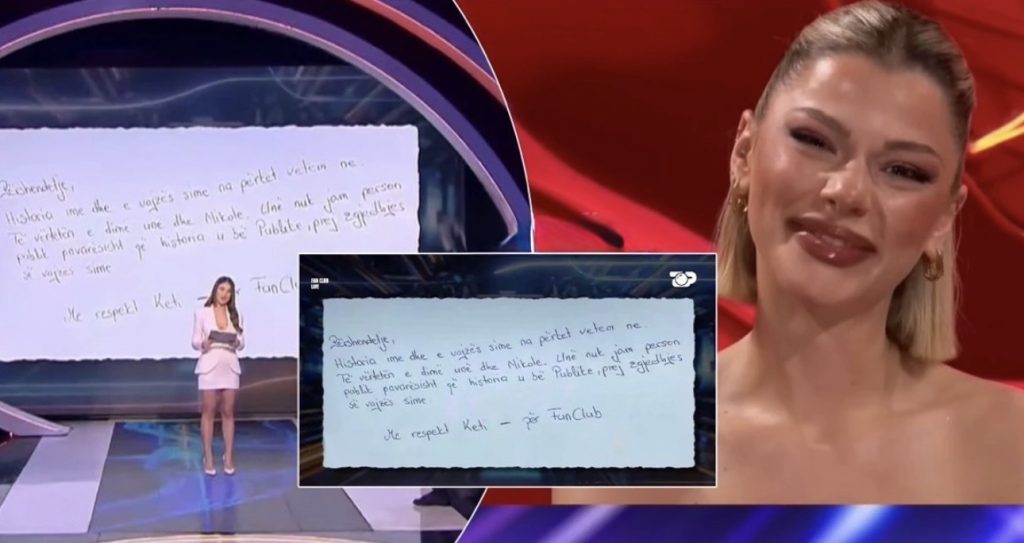 Përshëndetje,
Historia ime dhe e vajzës sime na përket vetëm ne.
Të vërtetën e dimë unë dhe Nikole. Unë nuk jam person
publik pavarësisht që historia u bë Publike, prej zgjedhjes
së vajzës sime
Me respekt Keti – për FanClu
FAN CLUB
LIVE
Përshëndetje,
Historia ime dhe e vajzës sime na përket vetëm ne.
Të vërtetën e dimë unë dhe Nikole. Unë nuk jam person
publik pavarësisht që historia u bë Publike, prej zgjedhjes
së vajzës sime.
Me respekt Keti – për FunClub